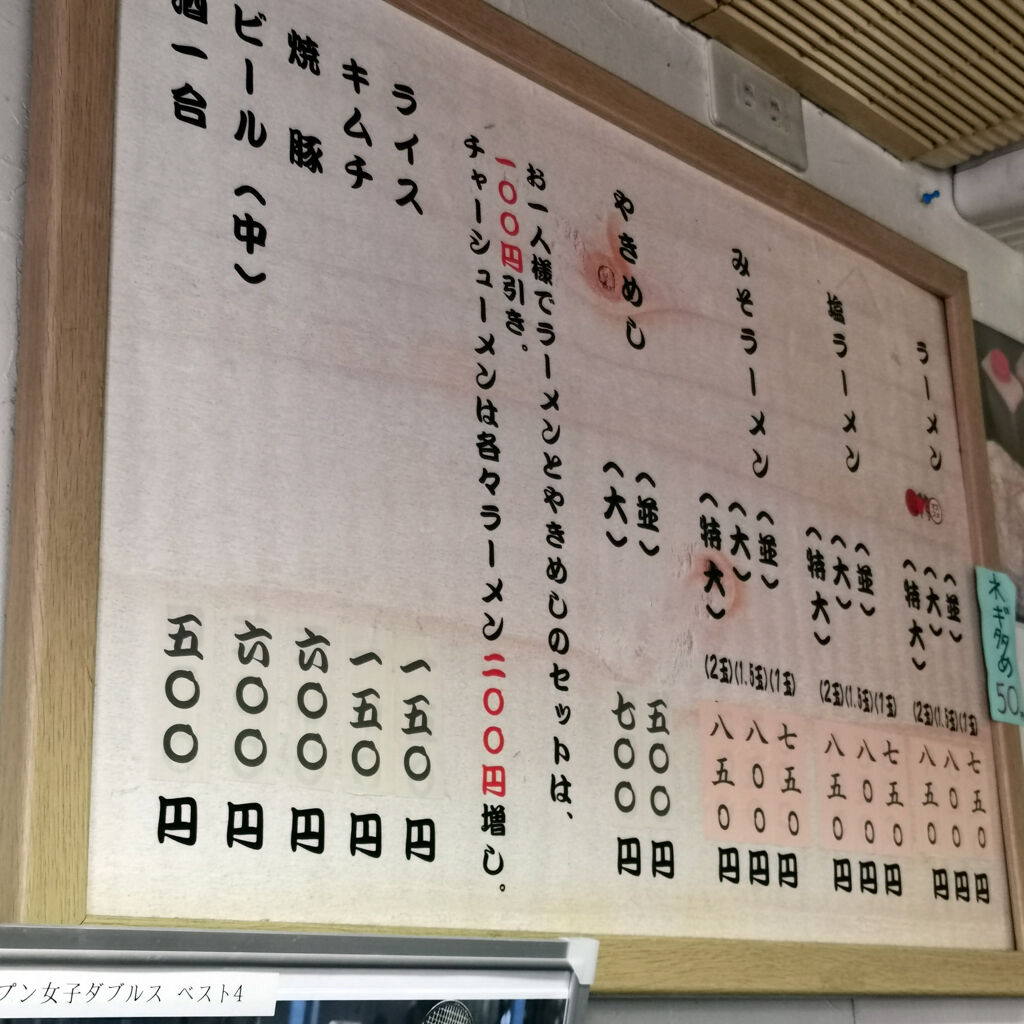 ラーメン（並）(1玉)七五〇円
（大）(1.5玉)八〇〇円
（特大）(2玉)八五〇円
塩ラーメン（並）(1玉)七五〇円
（大）(1.5玉)八〇〇円
（特大）(2玉)八五〇円
みそラーメン（並）(1玉)七五〇円
（大）(1.5玉)八〇〇円
（特大）(2玉)八五〇円
やきめし（並）五〇〇円
（大）七〇〇円
お一人様でラーメンとやきめしのセットは、
一〇〇円引き。
チャーシューメンは各々ラーメン二〇〇円増し。
ライス一五〇円
キムチ一五〇円
焼豚六〇〇円
ビール（中）六〇〇円
酒一合五〇〇円
ネギ多め
50
プン女子ダブルス ベスト4